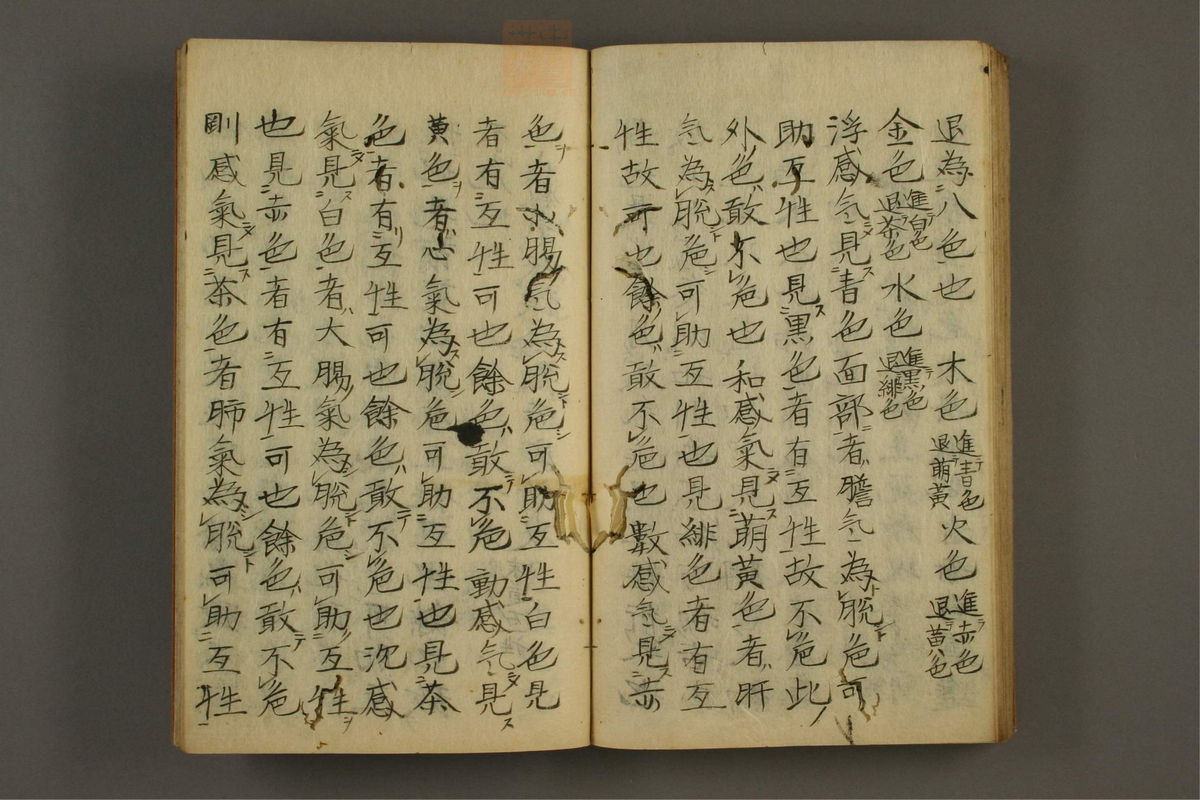 退為八色也 木色 進青色 退萌黄 火色 進赤色 退黄色
金色 進白色 退茶色 水色 進黒色 退緋色
浮感气見青色面部者膽气為脱危可
助互性也見黒色者有互性故不危此
外色敢不危也 和感氣見萌黄色者肝
气為脱危可助互性也見緋色者有互
性故可也餘色敢不危也數感气見赤
色者小腸气為脱危可助互性白色見
者有互性可也餘色敢不危 動感气見
黄色者心氣為脱危可助互性也見茶
色者有互性可也餘色敢不危也沉感
氣見白色者大腸氣為脱危可助互性
也見赤色者有互性可也餘色敢不危
剛感氣見茶色者肺氣為脱可助互性